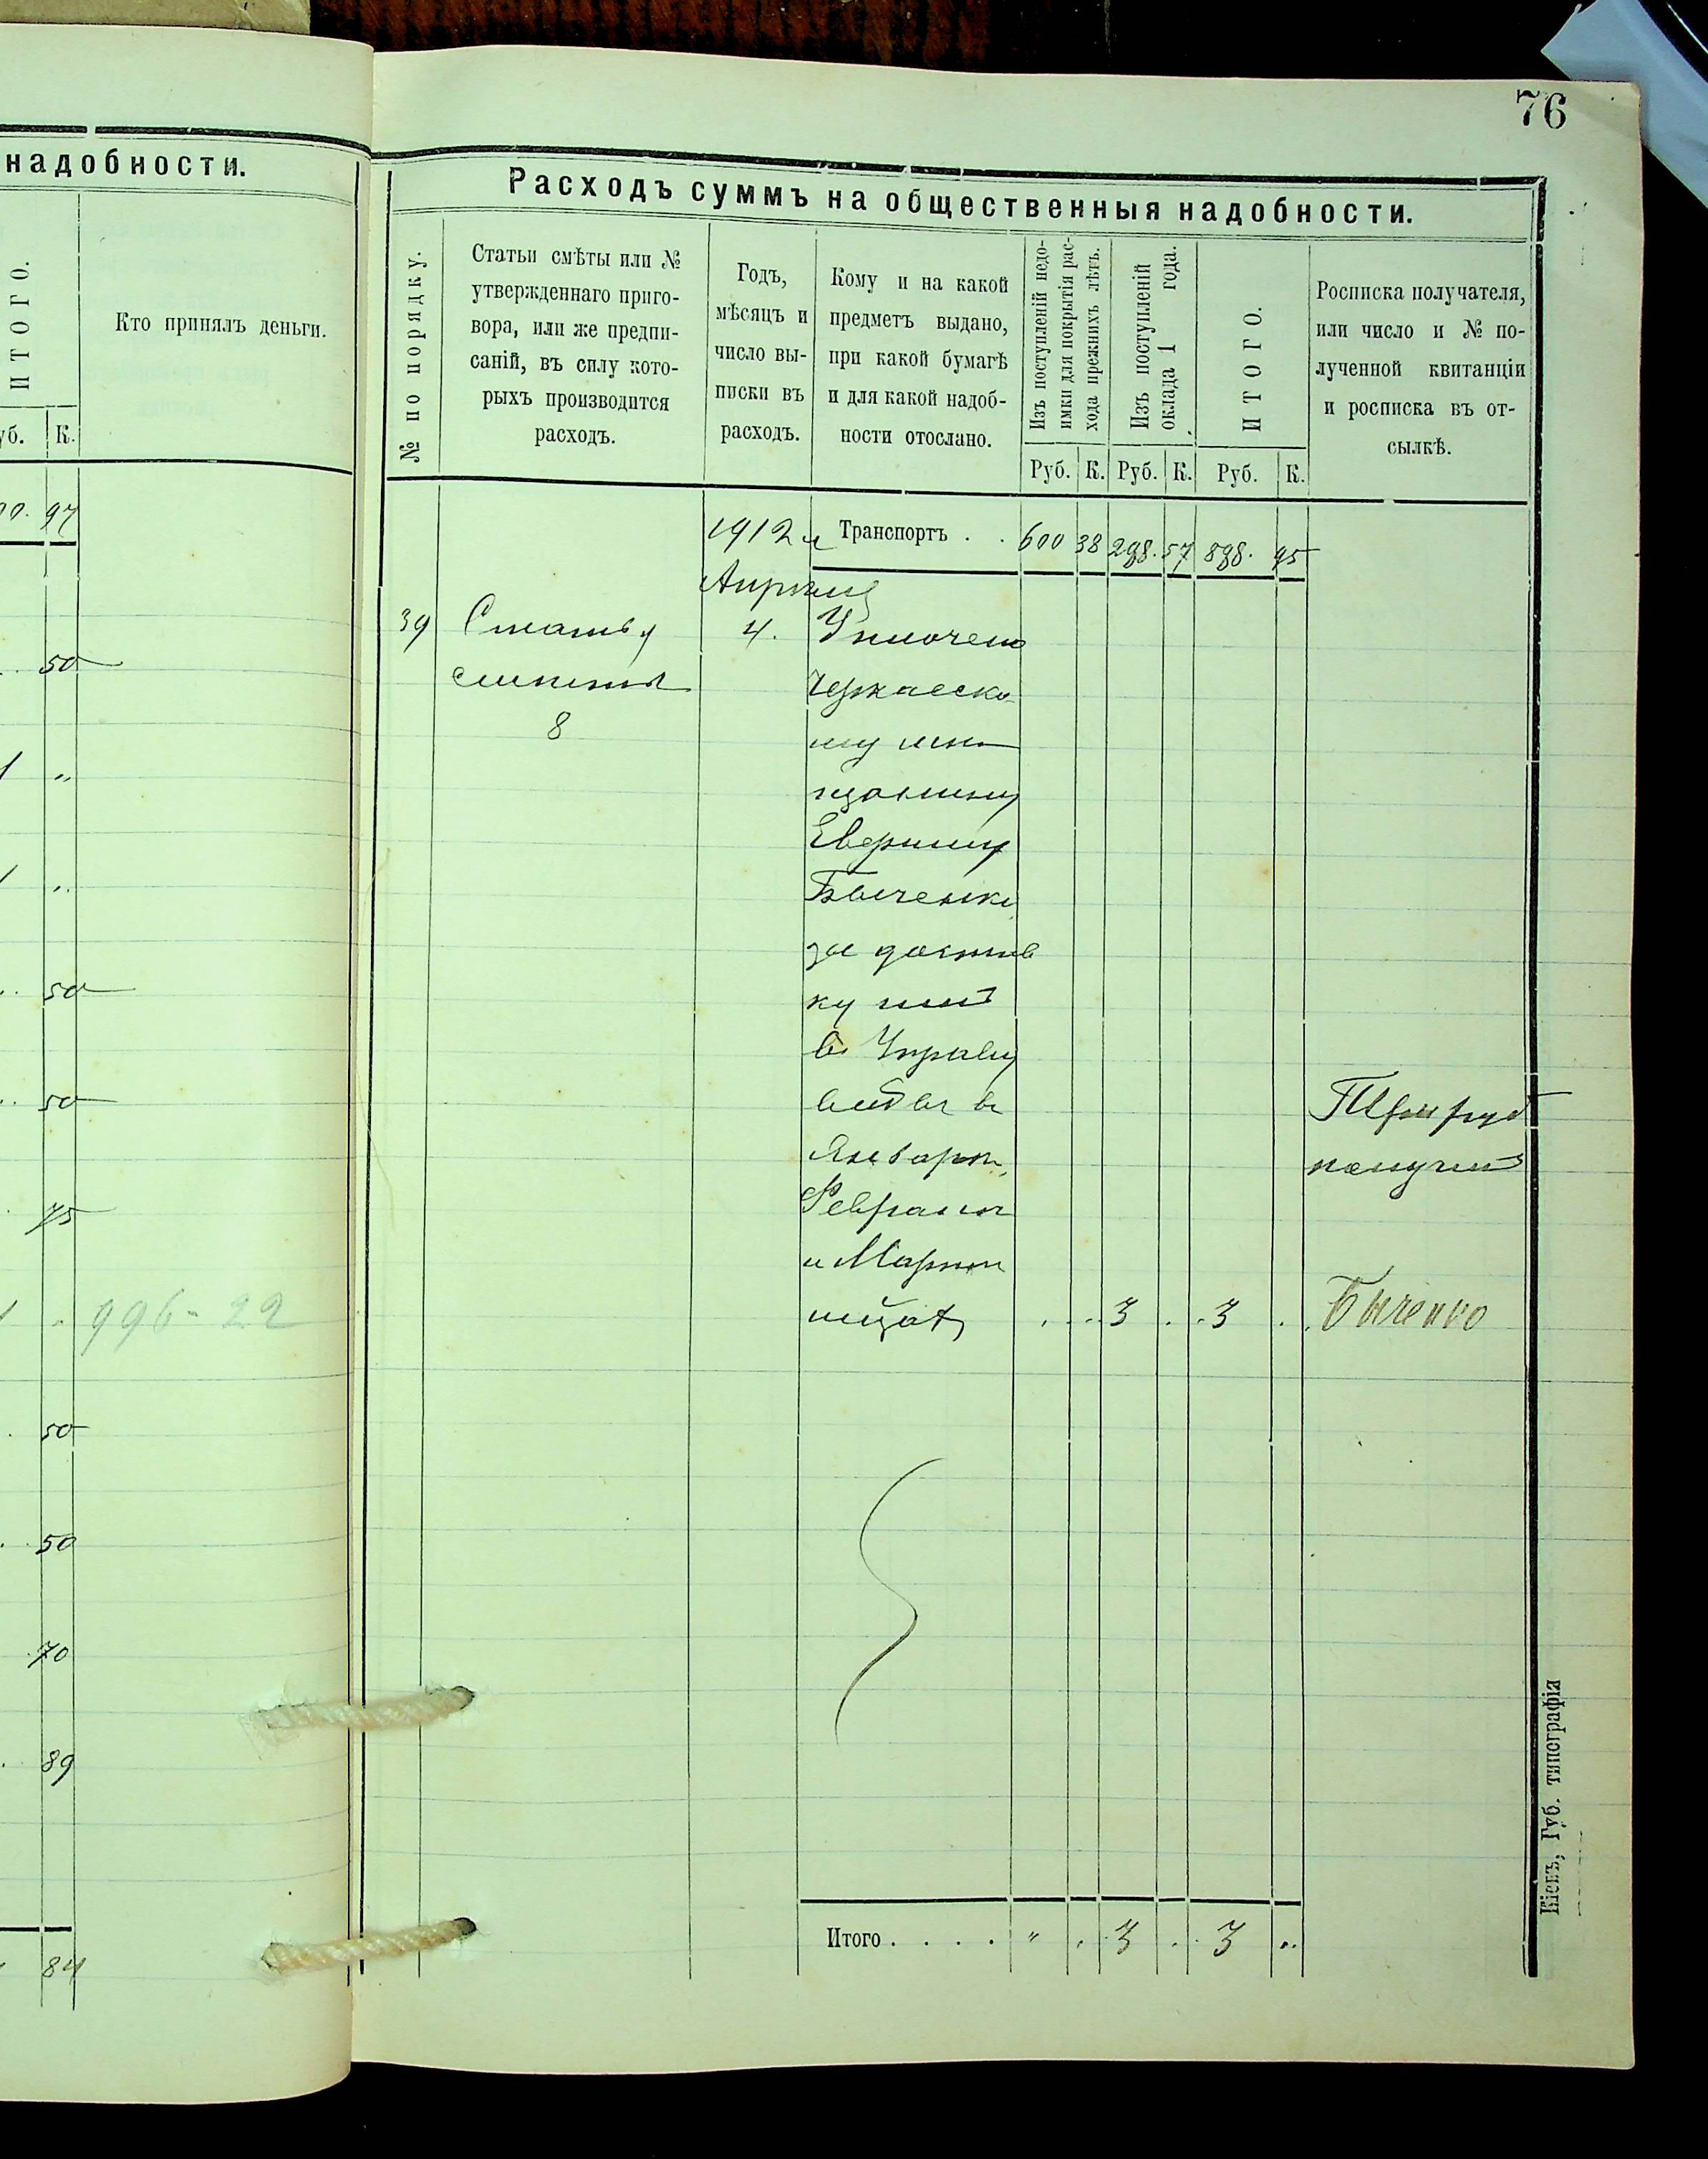 надобности.
ИТОГО.
Кто принялъ деньги.
уб. К.
00. 97
50
1 "
1 "
50
50
75
1 . 996-22
50
50
70
89
84
76
Расходъ суммъ на общественныя надобности.
№ по порядку.
Статьи смѣты или №
утвержденнаго приго-
вора, или же предпи-
саній, въ силу кото-
рыхъ производится
расходъ.
Годъ,
мѣсяцъ и
число вы-
писки въ
расходъ.
Кому и на какой
предметъ выдано,
при какой бумагѣ
и для какой надоб-
ности отослано.
Изъ поступленій недо-
имки для покрытія рас-
хода прежнихъ лѣтъ.
Изъ поступленій
оклада 1 года.
ИТОГО.
Росписка получателя,
или число и № по-
лученной квитанціи
и росписка въ от-
сылкѣ.
Руб. К. Руб. К. Руб. К.
1912 г. Транспортъ . . 600 38 298. 57 898. 95
Апрѣля
39 Статья 4. Уплочено
смѣты Черкасско-
8
му мѣ-
щанину
Быченко
за достав
ку
въ Управу
воды въ
Январѣ,
Февралѣ
и Мартѣ
Три руб
получилъ
м-цахъ . . . 3 . . 3 . . Быченко
Итого . . . . " . 3 . . 3 ..
Кіевъ, Губ. типографія